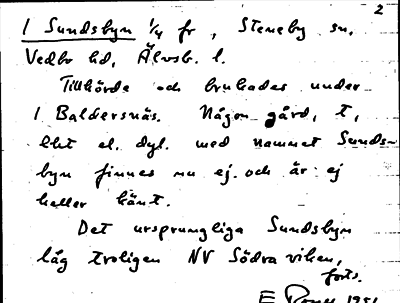 2
1 Sundsbyn 1/4 fr, Steneby sn,
Vedbo hd, Älvsb. l.
Tillhörde och brukades under
1 Baldersnäs. Någon gård, t,
lht el. dyl. med namnet Sunds-
byn finnes nu ej. och är ej
heller känt.
Det ursprungliga Sundsbyn
låg troligen NV Södra viken,
forts.
E 1951